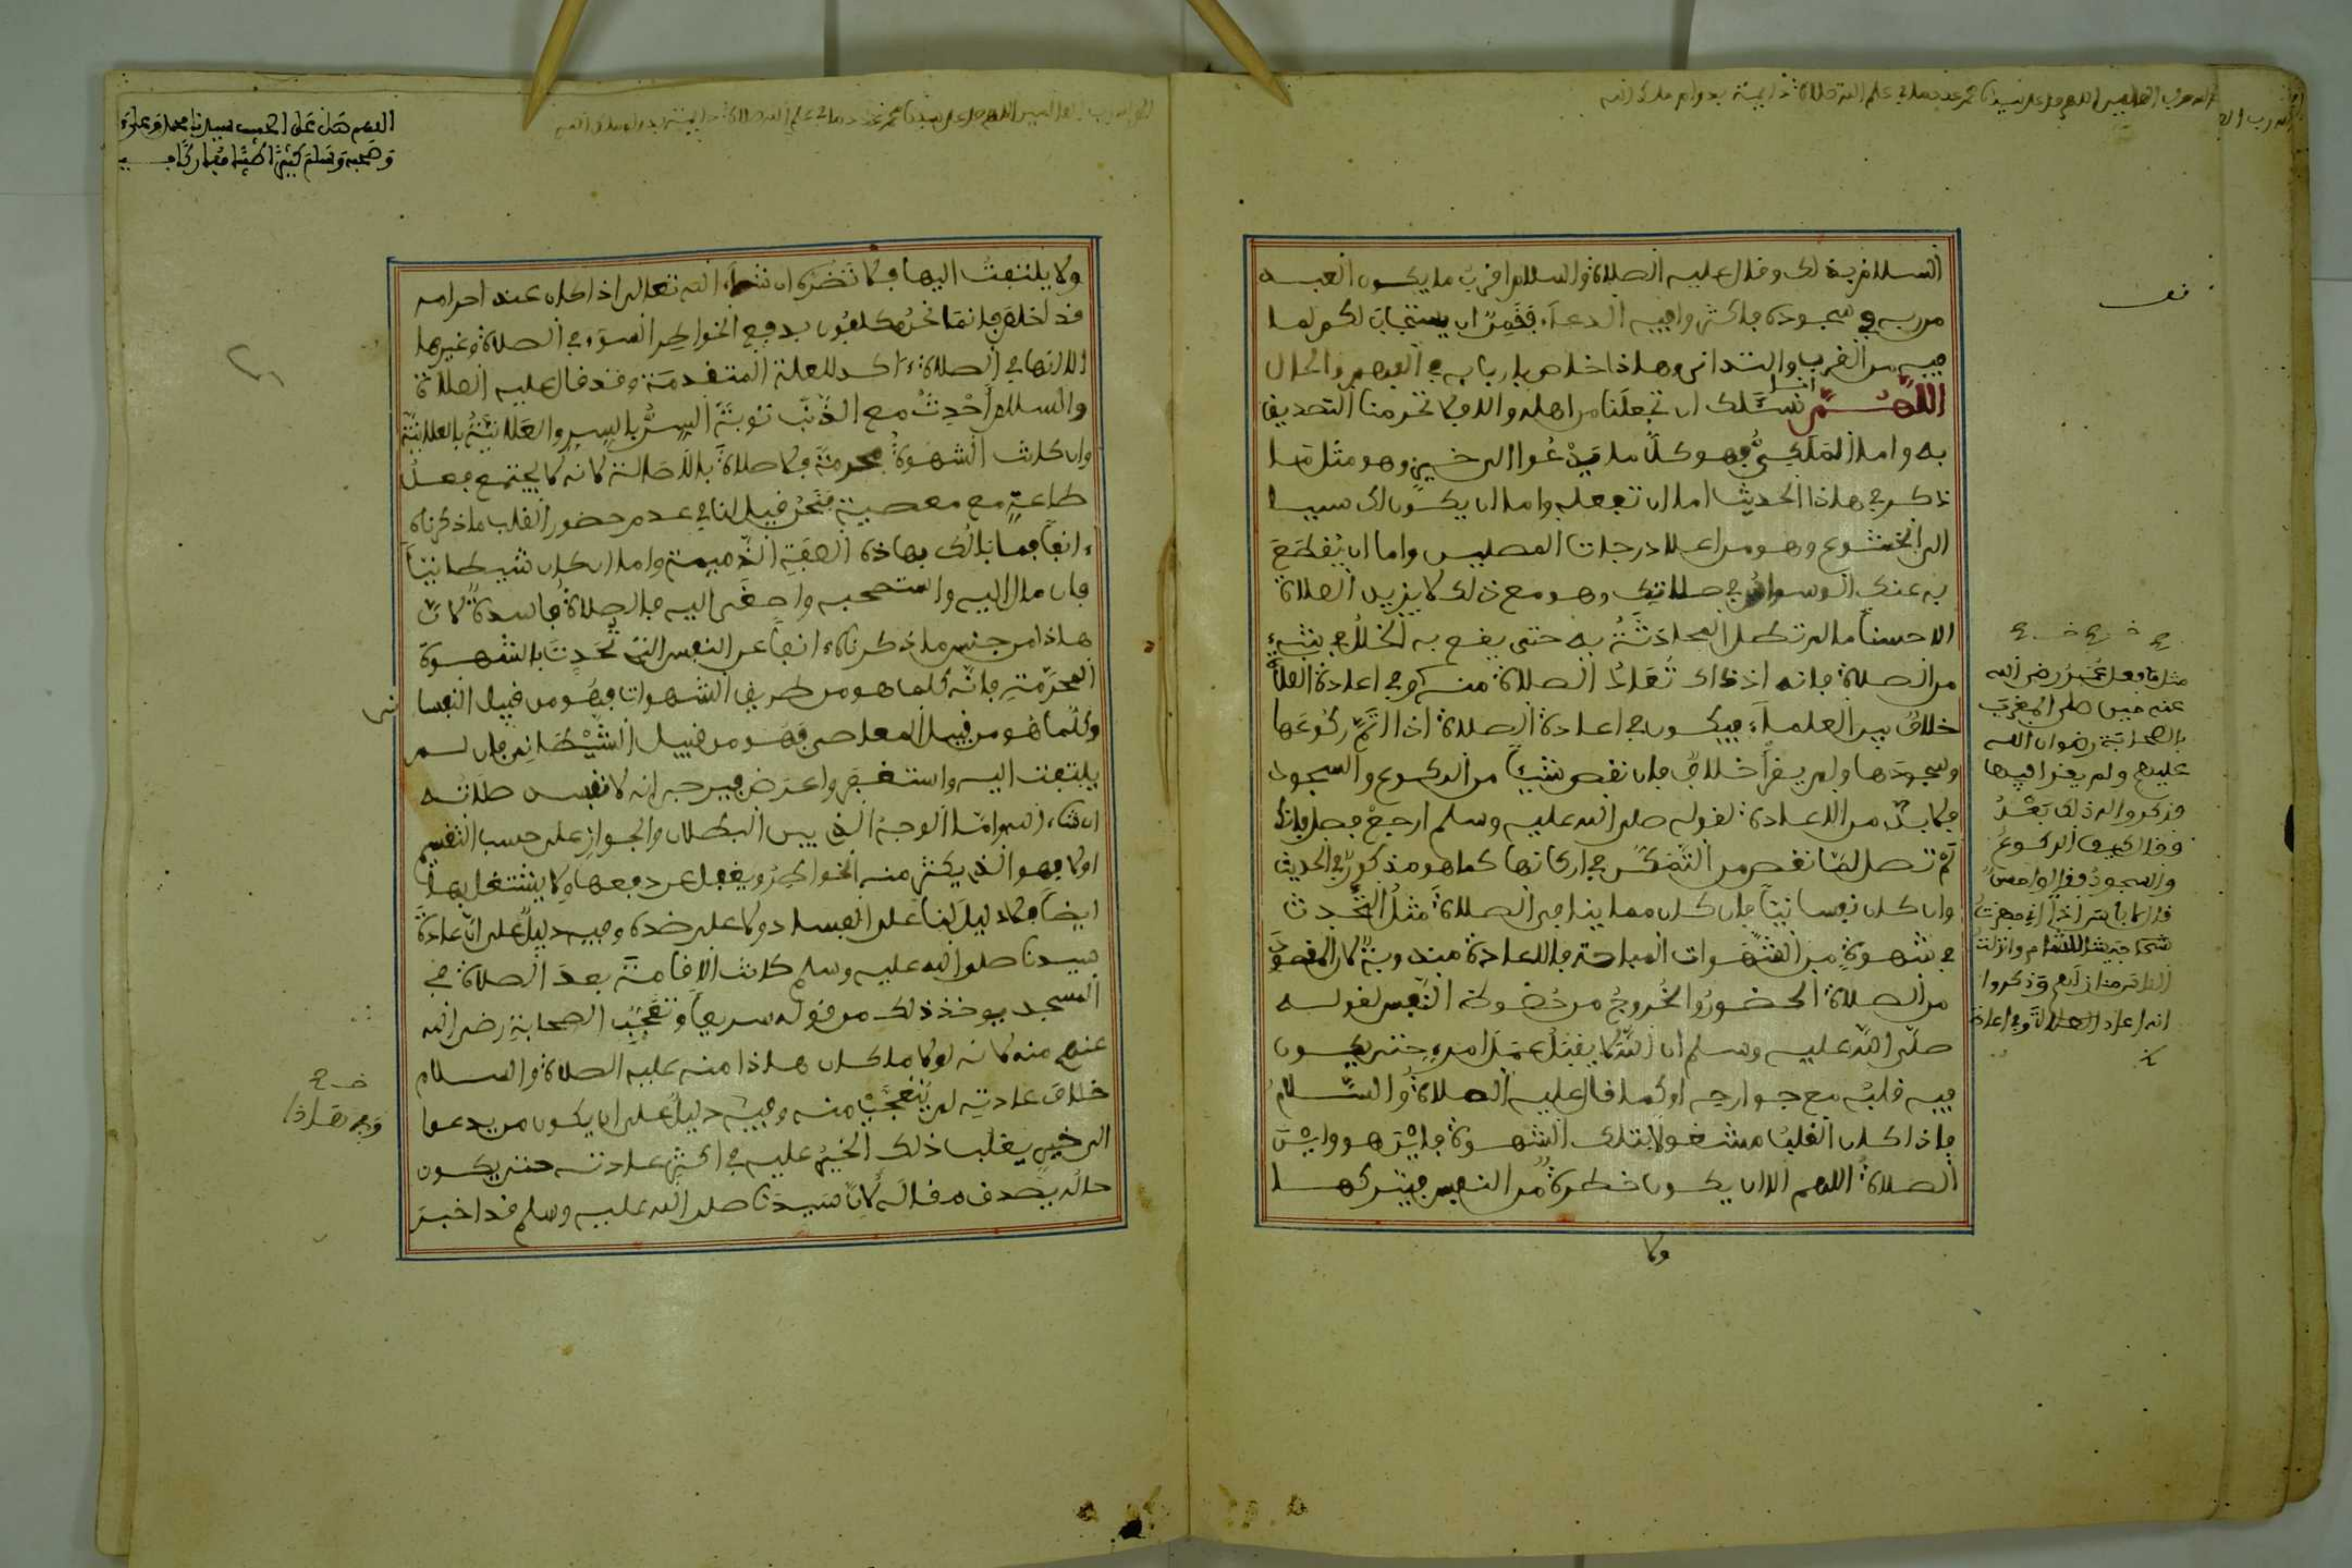 السلام بذلك وقال عليه الصلاة والسلام اقرب ما يكون العبد
من ربه في سجوده فاكثروا فيه الدعاء فقمن ان يستجاب لكم لما
فيه من القرب والتداني وهاذا خاص باربابه في الفهم والحال
اللهم نسئلك ان تجعلنا من اهله والا فلا تحرمنا التصديق
به واما الملكي فهو كل ما يدعوا الى خير وهو مثل ما
ذكر في هاذا الحديث اما ان تفعله واما ان يكون لك سببا
الى الخشوع وهو من اعلا درجات المصلين واما ان يقطع
به عنك الوسواس في صلاتك وهو مع ذلك لا يزيد الصلاة
الا حسنا ما لم تطل المحادثة به حتى يقع به الخلل في شيء
من الصلاة فانه اذ ذاك تعاد الصلاة منه وفي اعادة الصلاة
خلاف بين العلماء فيكون في اعادة الصلاة اذا اتم ركوعها
وسجودها ولم يقرأ خلاف فان نقص شيئا من الركوع والسجود
فلا بد من الاعادة لقوله صلى الله عليه وسلم ارجع فصل فانك
لم تصل لما نقص من التمكن في اركانها كما هو مذكور في الحديث
وان كان نفسانيا فان كان مما ينافي الصلاة مثل التحدث
في شهوة من الشهوات المباحة فالاعادة مندوبة لان المقصود
من الصلاة الحضور والخروج من حظوظ النفس لقوله
صلى الله عليه وسلم ان الله لا يقبل عمل امرء حتى يكون
فيه قلبه مع جوارحه او كما قال عليه الصلاة والسلام
فاذا كان القلب مشغولا بتلك الشهوة فاين هو واين
الصلاة اللهم الا ان يكون خطرة من النفس فيتركها
ولا
مثل ما فعل عمر رضي الله
عنه حين صلى المغرب
بالصحابة رضوان الله
عليهم ولم يقرا فيها
فذكروا له ذلك بعد
فقال كيف الركوع
والسجود فقالوا حسن
قال لا باس اذا اني جهزت
جيش الشام وانزلت
منازلهم وذكروا
انه اعاد الصلاة وفي اعادة
ولا يلتفت اليها فلا تضره ان شاء الله تعالى اذا كان عند احرامه
قد اخلص فانما نحن مكلفون بدفع الخواطر السوء في الصلاة وغيرها
الا انها في الصلاة ءاكد للعلة المتقدمة وقد قال عليه الصلاة
والسلام احدث مع الذنب توبة السر بالسر والعلانية بالعلانية
وان كانت الشهوة محرمة فلا صلاة بالاصالة لانه لا يجتمع فعل
طاعة مع معصية فنحن قيل لنا في عدم حضور القلب ما ذكرناه
ءانفا فما بالك بهاذه الصفة الذميمة واما ان كان شيطانيا
فان مال اليه واستصحبه واصغى اليه فالصلاة فاسدة لان
هاذا من جنس ما ذكرناه ءانفا عن النفس التي تحدث بالشهوة
المحرمة فانه كلما هو من طريق الشهوات فهو من قبيل النفسا
ني
وكلما هو من قبيل المعاصي فهو من قبيل الشيطاني فان لم
يلتفت اليه واستغفر واعرض فيرجى انه لا تفسد صلاته
ان شاء الله واما الوجه الذي بين البطلان والجواز على حسب التقسيم
اولا فهو الذي يكثر منه الخواطر ويغفل عن دفعها ولا يشتغل بها
ايضا فلا دليل لنا على الفساد ولا على ضده وفيه دليل على ان عادة
سيدنا صلى الله عليه وسلم كانت الاقامة بعد الصلاة في
المسجد يوخذ ذلك من قوله سريعا وتعجب الصحابة رضي الله
عنهم منه لانه لولا ما كان هاذا منه عليه الصلاة والسلام
خلاف عادته لم يتعجب منه وفيه دليل على ان يكون من يدعوا
الى خير يغلب ذلك الخير عليه في اكثر عادته حتى يكون
حاله يصدق مقاله لان سيدنا صلى الله عليه وسلم قد اخبر
اللهم صل على الحبيب سيدنا محمد وعلى ءاله
وصحبه وسلم كثيرا